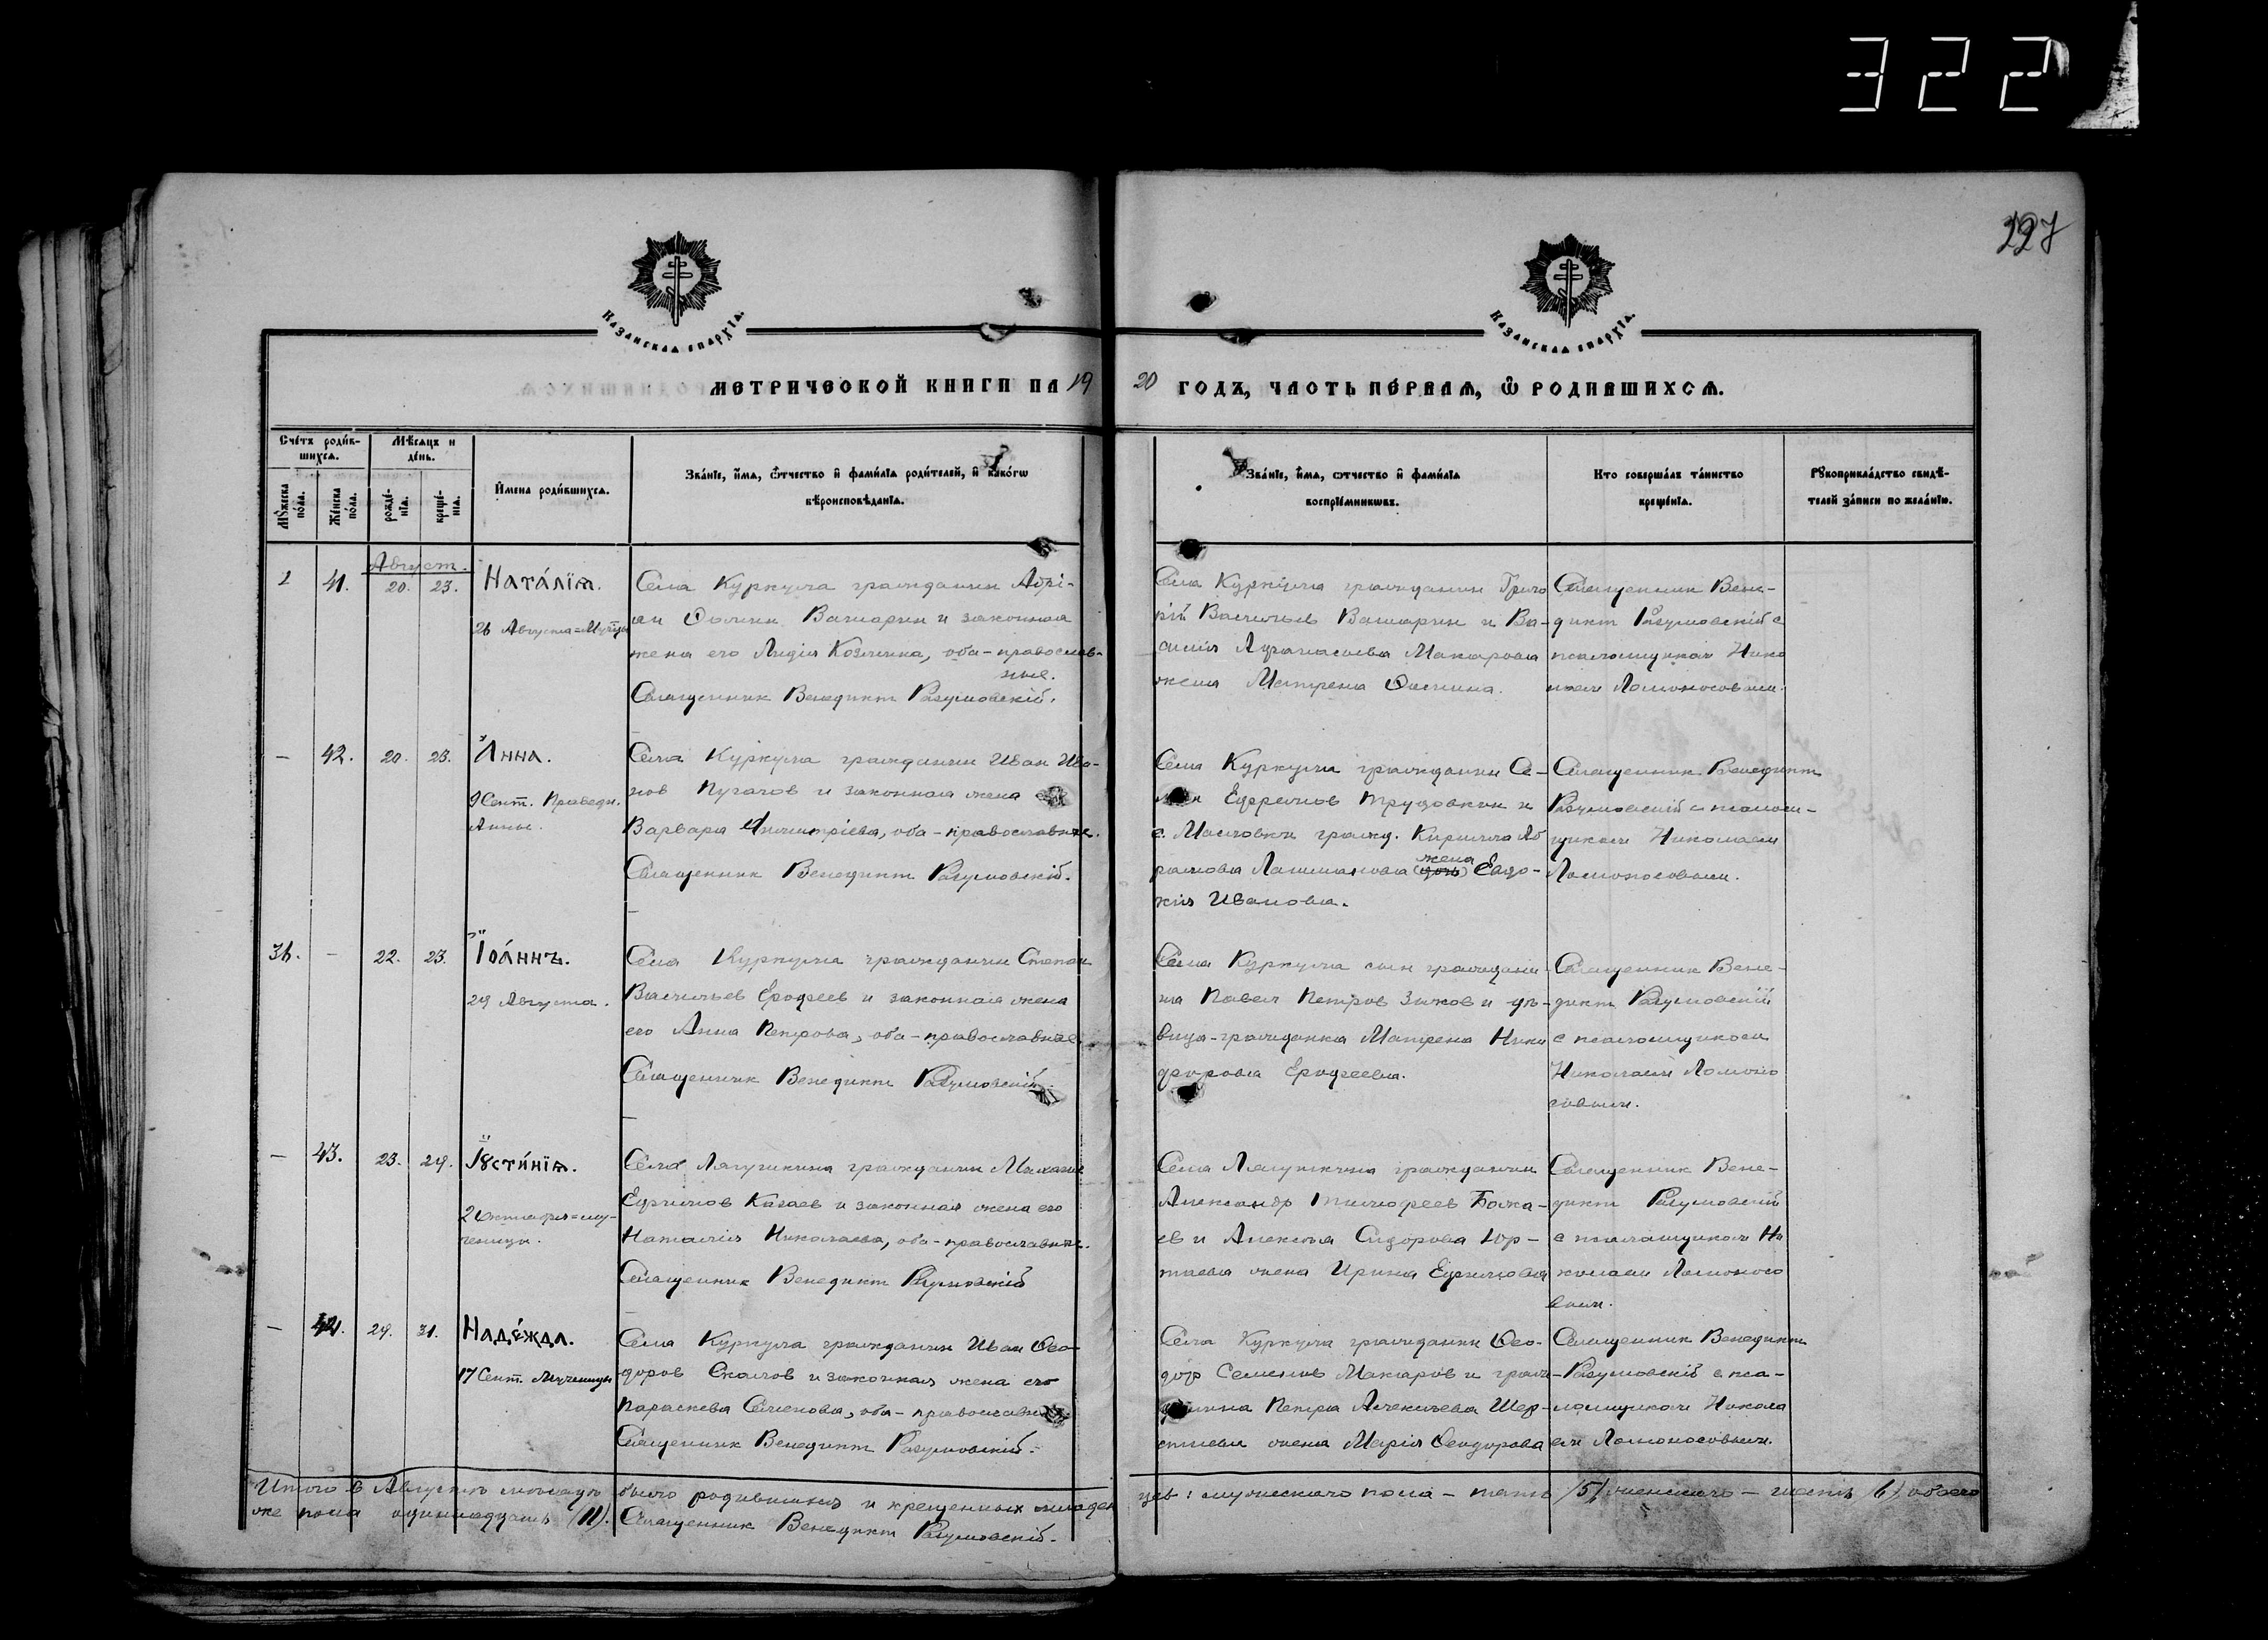 322
227
КАЗАНСКАЯ ЕПАРХІЯ.
КАЗАНСКАЯ ЕПАРХІЯ.
МЕТРИЧЕСКОЙ КНИГИ НА 19
20 ГОДЪ, ЧАСТЬ ПЕ́РВАЯ, Ѿ РОДИВШИХСѦ.
Сче́тъ роди́в-
шихсѧ.
Мѣ́сяцъ и
де́нь.
Мꙋ́жеска
по́ла.
Же́нска
по́ла.
рожде́-
нїѧ.
креще́-
нїѧ.
И҆мена роди́вшихсѧ.
Зва́нїе, и҆́мѧ, ѻ҆́тчество и҆ фами́лїѧ роди́телей, и҆ како́гѡ
вѣроисповѣ́данїѧ.
Зва́нїе, и҆́мѧ, ѻ҆тчество и҆ фами́лїѧ
воспрїе́мникѡвъ.
Кто соверша́лъ та́инство
креще́нїѧ.
Рꙋкоприкла́дство свидѣ́-
телей за́писи по жела́нїю.
Август.
41. 20. 23. Ната́лїѧ.
26 Августа = Муч̃цы
Села Куркуля гражданин Адрі-
ан Ѳомин Вашарин и законная
жена его Лидія Козмина, оба - православ-
ные.
Священник Венедикт Разумовскій.
Села Куркуля гражданин Григо
рій Васильев Вашарин и Ва-
силія Аѳанасьева Макарова
жена Матрена Ѳомина.
Священник Вене-
дикт Разумовскій с
псаломщиком Нико
лаем Ломоносовым.
— 42. 20. 23. А҆нна.
9 Сент. Праведн.
Анны.
Села Куркуля гражданин Иван Ива-
нов Пугачов и законная жена
Варвара Димитріева, оба - православные.
Священник Венедикт Разумовскій.
Села Куркуля гражданин Се-
Ефремов Трудовкин и
с. Масловки гражд. Кирилла Аб
рамова жена (дочь) Евдо-
кія Иванова.
Священник Венедикт
Разумовскій с псалом-
щиком Николаем
Ломоносовым.
36. — 22. 23. Іѡа́ннъ.
29 Августа.
Села Куркуля гражданин Степан
Васильев Ерофеев и законная жена
его Анна Петрова, оба - православные.
Священник Венедикт Разумовскій.
Села Куркуля сын граждани-
на Павел Петров Зыков и дѣ-
вица - гражданка Матрена Ники
форова Ерофеева.
Священник Вене-
дикт Разумовскій
с псаломщиком
Николаем Ломоно
совым.
— 43. 23. 24. Іꙋсти́нїѧ.
2 Октября = му-
ченицы.
Села Лягушкина гражданин Михаил
Ефимов Казаев и законная жена его
Наталія Николаева, оба - православные.
Священник Венедикт Разумовскій
Села Лягушкина гражданин
Александр Тимофеев Божа-
ев и Алексѣя Сидорова Юр-
таева жена Ирина Ефимова
Священник Вене-
дикт Разумовскій
с псаломщиком Ни
колаем Ломоносо
вым.
— 44. 29. 31. Наде́жда.
17 Сент. Мученицы
Села Куркуля гражданин Иван Ѳео-
доров Скалов и законная жена его
Параскева Семенова, оба - православные.
Священник Венедикт Разумовскій.
Села Куркуля гражданин Ѳео-
дор Семенов Макаров и граж-
данина Петра Алексѣева Шер-
стнева жена Марія Ѳеодорова
Священник Венедикт
Разумовскій с пса-
ломщиком Никола
ем Ломоносовым.
Итого в Августѣ мѣсяцѣ было родившихся и крещенных младен цев: мужескаго пола - пять /5/, женскаго - шесть /6/, обоего
же пола одиннадцать /11/. Священник Венедикт Разумовскій.